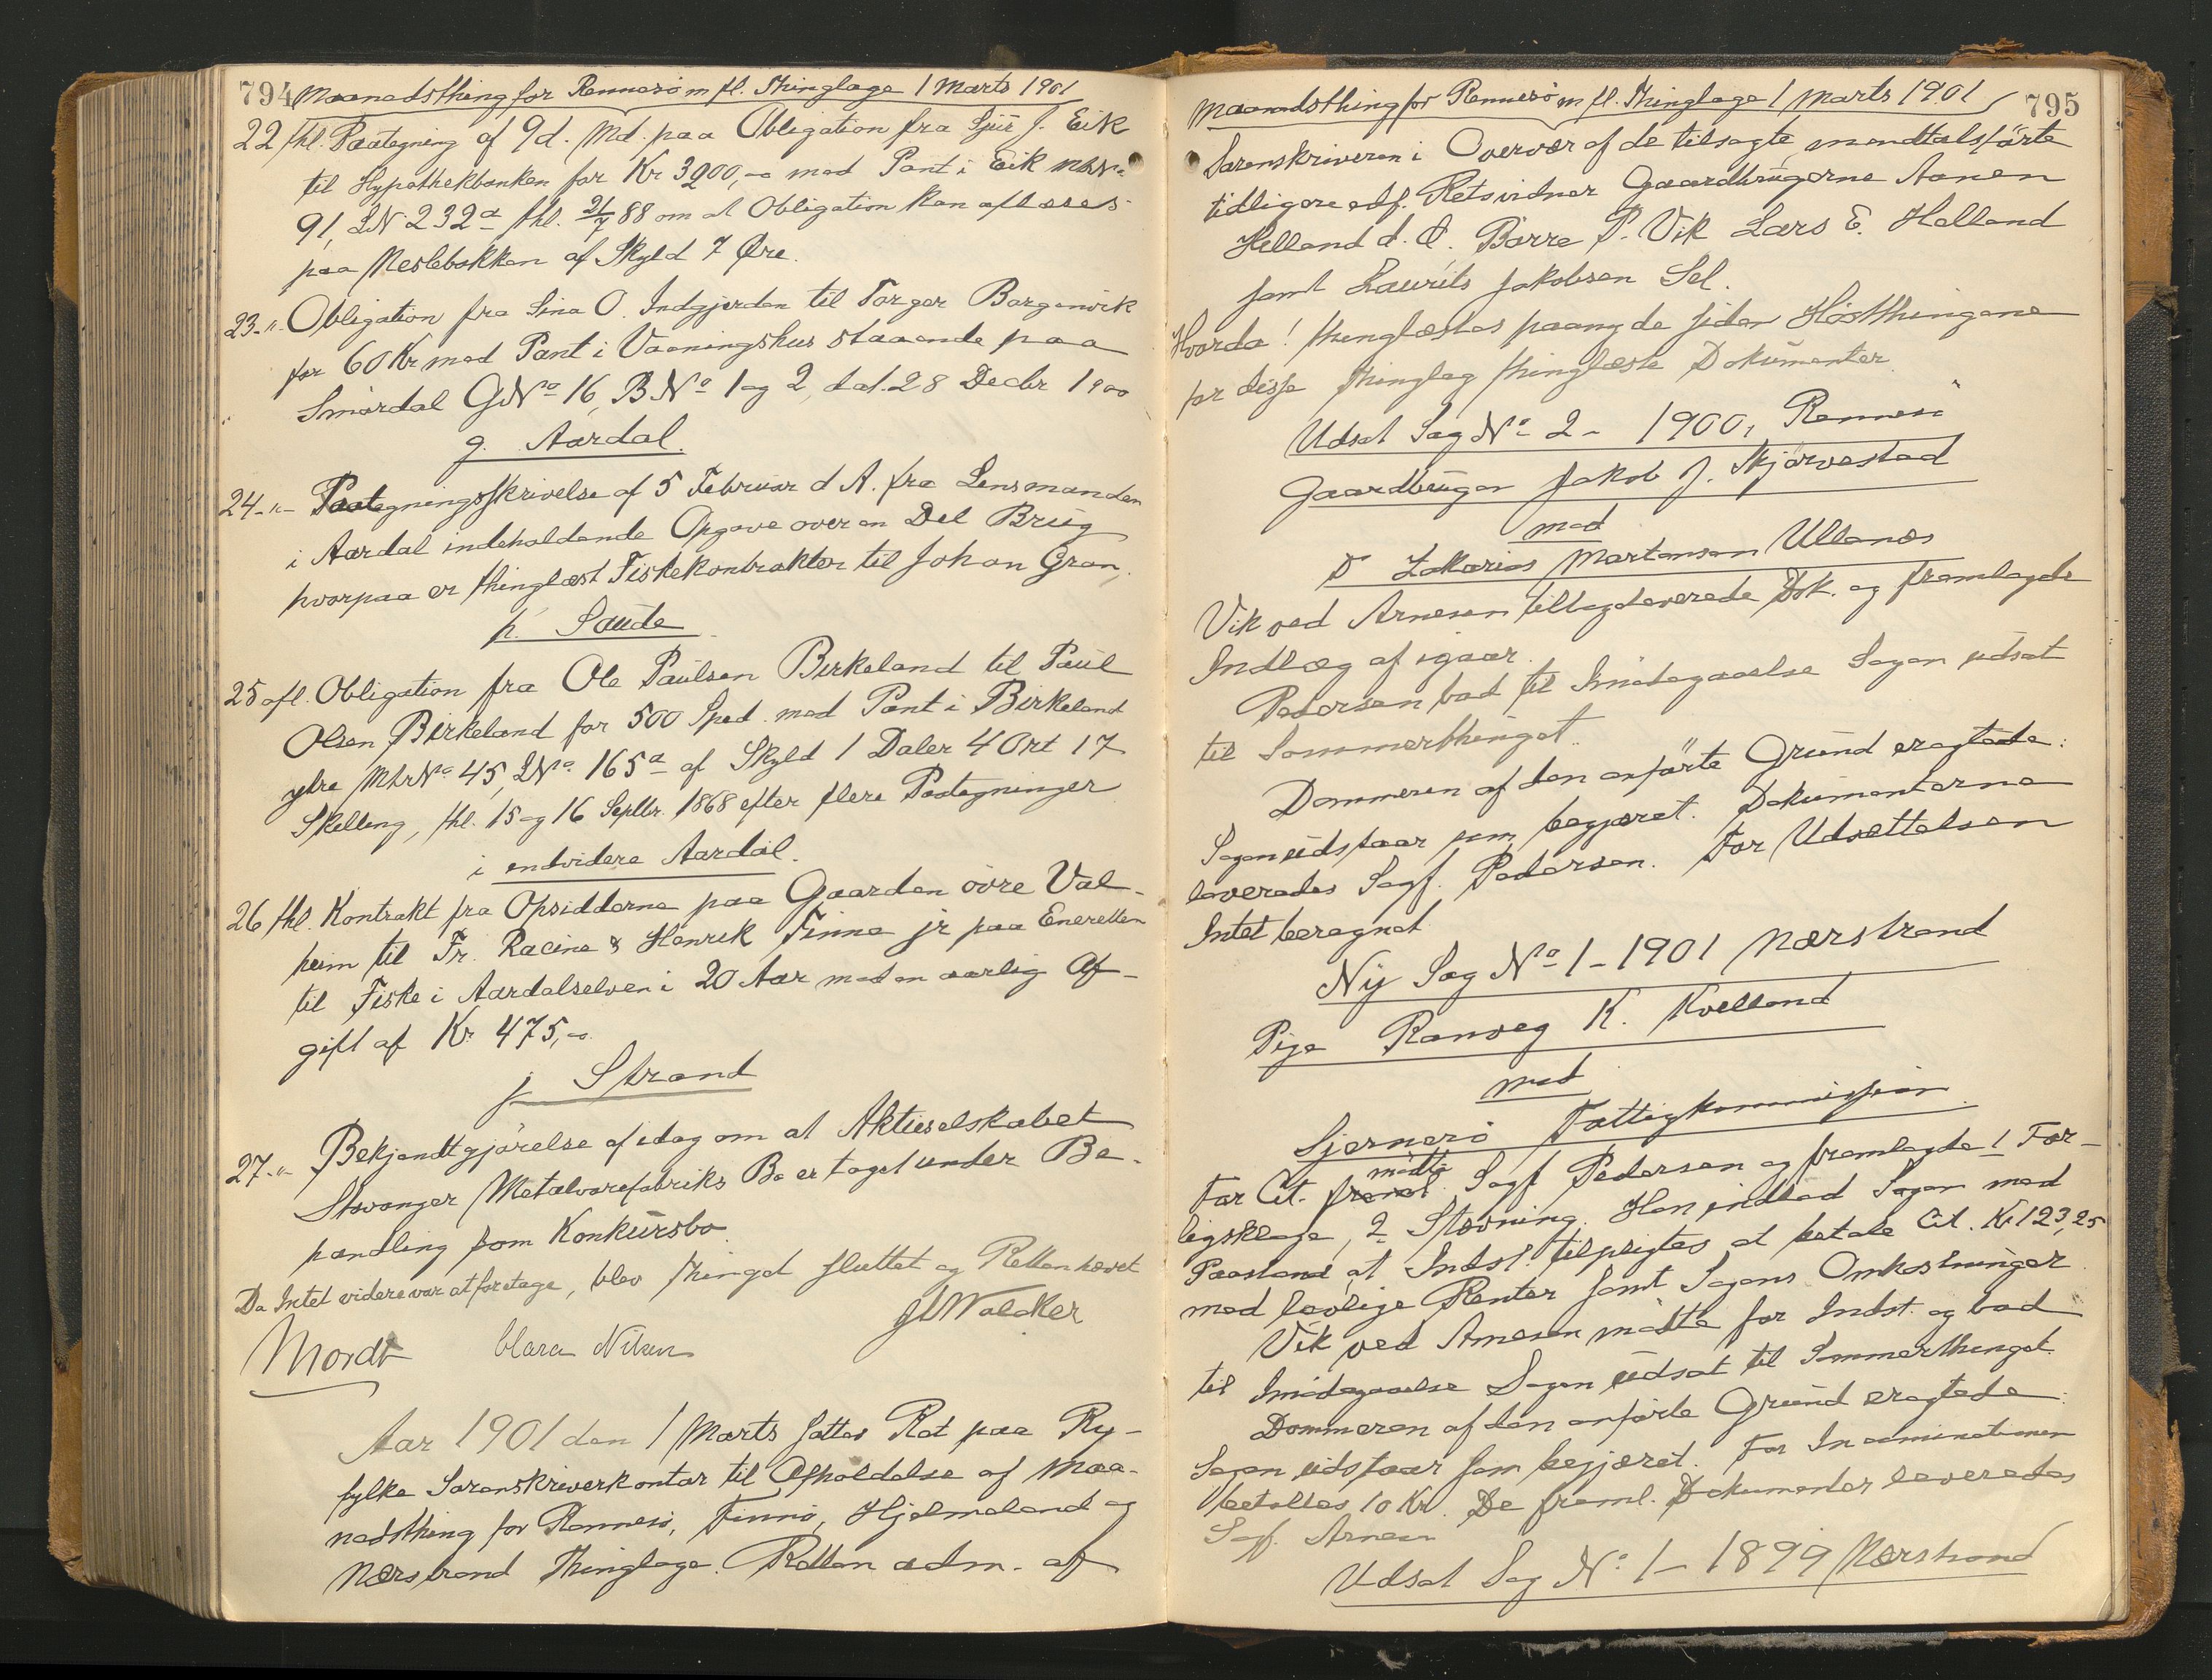 794 Maanedsthing for Rennesö m fl. Thinglage 1 Marts 1901
22 thl. Paategning af 9 d. Md. paa Obligation fra J. Eik
til Hypothekbanken for Kr 3200,- med Pant i Eik MNo
91, LN 232a thl. 21/7 88 om at Obligation kan aflæses
paa Neslebakken af Skyld 7 Öre.
23 -"- Obligation fra Sina O. Indgjerden til Torger Borgenvik
for 60 Kr med Pant i Vaaningshus staaende paa
Smördal GNo 16, BNo 1 og 2, dat. 28 Decbr 1900
g. Aardal.
24 -"- Paategningsskrivelse af 5 Februar d A. fra Lensmanden
i Aardal indeholdende Opgave over en Del Brug
hvorpaa er thinglæst Fiskekontrakter til Johan Gran.
h. Saude
25 afl. Obligation fra Ole Paulsen Birkeland til Paul
Olsen Birkeland for 500 Spd. med Pant i Birkeland
ytre MtrNo 45, LNo 165a af Skyld 1 Daler 4 Ort 17
Skilling, thl. 15 og 16 Septbr. 1868 efter flere Paategninger
i endvidere Aardal.
26 thl. Kontrakt fra Opsidderne paa Gaarden övre Val-
heim til Fr. Racine & Henrik Finne jr paa Eneretten
til Fiske i Aardalselven i 20 Aar mod en aarlig Af-
gift af Kr 475,-
j Strand
27 -"- Bekjendtgjörelse af idag om at Aktieselskabet
Stavanger Metalvarefabriks Bo er taget under Be-
handling som Konkursbo.
Da Intet videre var at foretage, blev thinget sluttet og Retten hævet
Walcker
Mordt Clara Nilsen
Aar 1901 den 1 Marts sattes Ret paa Ry-
fylke Sorenskriverkontor til Afholdelse af Maa-
nedsthing for Rennesö, Finnö, Hjelmeland og
Nærstrand Thinglage. Retten adm. af
Maanedsthing for Rennesö m fl. Thinglage 1 Marts 1901 795
Sorenskriveren i Overvær af de tilsagte mandtalsförte
tidligere edf. Retsvidner Gaardbrugerne Aanen
Helland d. Æ. Börre P. Vik Lars E. Helland
samt Laurits Jakobsen Sel.
Hvorda! thinglæstes paany de siden Höstthingene
for disse thinglag thinglæste Dokumenter.
Udsat Sag No 2 - 1900, Rennesö
Gaardbruger Jakob J. Skjörvestad
mod
D Zakarias Martensen Ullenæs
Vik ved Arnesen tilbageleverede Dok. og fremlagde
Indlæg af igaar.
Pedersen bad til Imödegaaelse Sagen udsat
til Sommerthinget.
Dommeren af den anförte Grund eragtede:
Sagen udstaar som begjæret. Dokumenterne
leveredes Sagf. Pedersen. For Udsættelsen
Intet beregnet
Ny Sag No 1 - 1901 Nærstrand
Pige Ranveg K. Kvelland
mod
Sjernerö Fattigkommission
For Cit. mödte Sagf Pedersen og fremlagde 1 For-
ligsklage, 2 Stævning. Han indlod Sagen med
Paastand at Indst. tilpligtes at betale Cit. Kr 123,25
med lovlige Renter samt Sagens Omkostninger
Vik ved Arnesen mödte for Indst. og bad
til Imödegaaelse Sagen udsat til Sommerthinget.
Dommeren af den anförte Grund eragtede:
Sagen udstaar som begjæret. For Incaminationen
betaltes 10 Kr. De freml. Dokumenter leveredes
Sagf. Arnesen
Udsat Sag No 1 - 1899 Nærstrand